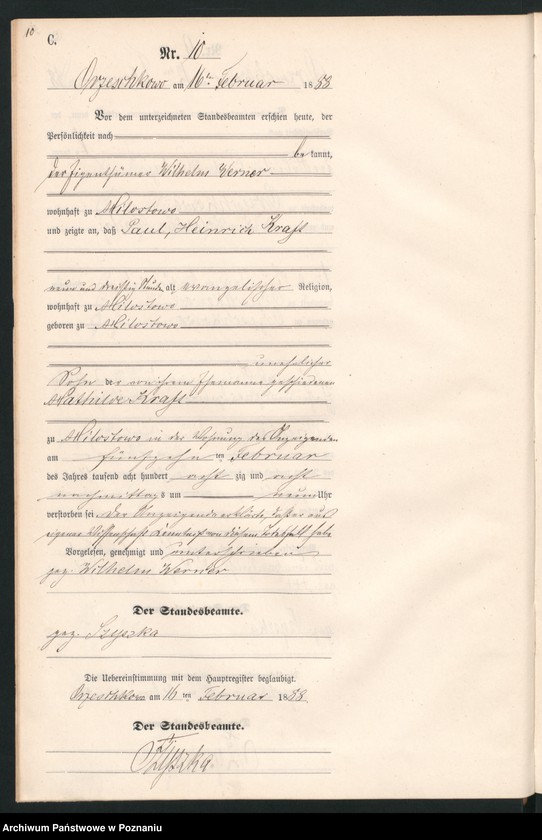 10
C.
Nr. 10
Orzeschkowo am 16ten Februar 1888
Vor dem unterzeichneten Standesbeamten erschien heute, der
Persönlichkeit nach
bekannt,
der Eigenthümer Wilhelm Werner
wohnhaft zu Milostowo
und zeigte an, daß Paul, Heinrich Kraft
neun und dreißig Stunden alt, evangelischer Religion,
wohnhaft zu Milostowo
geboren zu Milostowo
unehelicher
Sohn der von ihrem Ehemanne geschiedenen
Mathilde Kraft
zu Milostowo in der Wohnung des Anzeigenden
am fünfzehnten Februar
des Jahres tausend acht hundert achtzig und acht
nachmittags um neun Uhr
verstorben sei, der Anzeigende erklärte, daß er aus
eigener Wissenschaft Kenntniß von diesem Todesfall habe
Vorgelesen, genehmigt und unterschrieben
gez. Wilhelm Werner
Der Standesbeamte.
gez. Szyszka
Die Uebereinstimmung mit dem Hauptregister beglaubigt.
Orzeschkowo am 16ten Februar 1888
Der Standesbeamte.
Szyszka
Archiwum Państwowe w Poznaniu